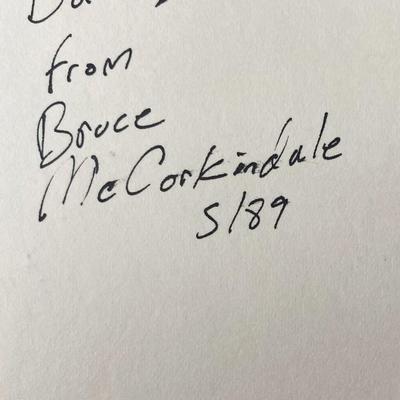 from
Bruce
McCorkindale
5/89